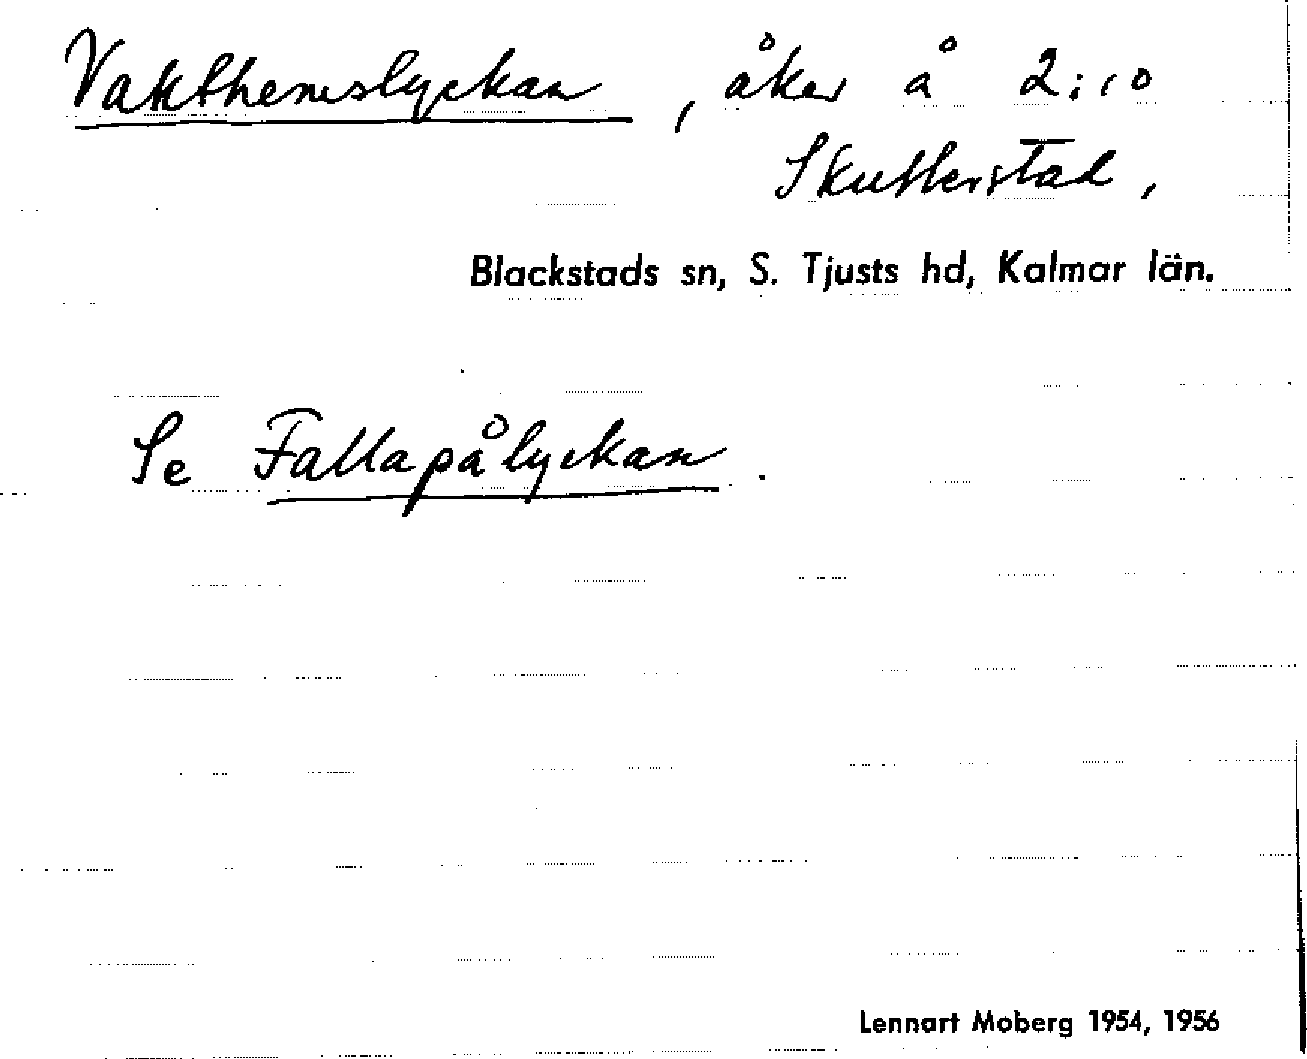 Vakthemslyckan, åker å 2:10
Skutterstad,
Blackstads sn, S. Tjusts hd, Kalmar län.
Se Fallapålyckan.
Lennart Moberg 1954, 1956